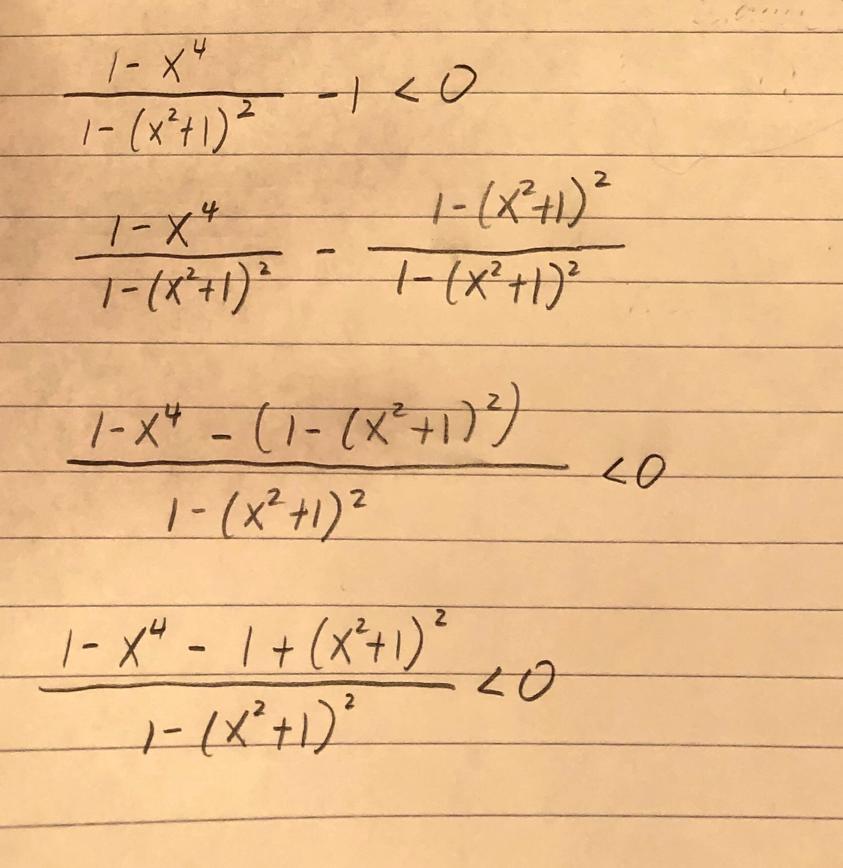 \frac{1-x^4}{1-(x^2+1)^2} -1 < 0
\frac{1-x^4}{1-(x^2+1)^2} - \frac{1-(x^2+1)^2}{1-(x^2+1)^2}
\frac{1-x^4-(1-(x^2+1)^2)}{1-(x^2+1)^2} < 0
\frac{1-x^4-1+(x^2+1)^2}{1-(x^2+1)^2} < 0